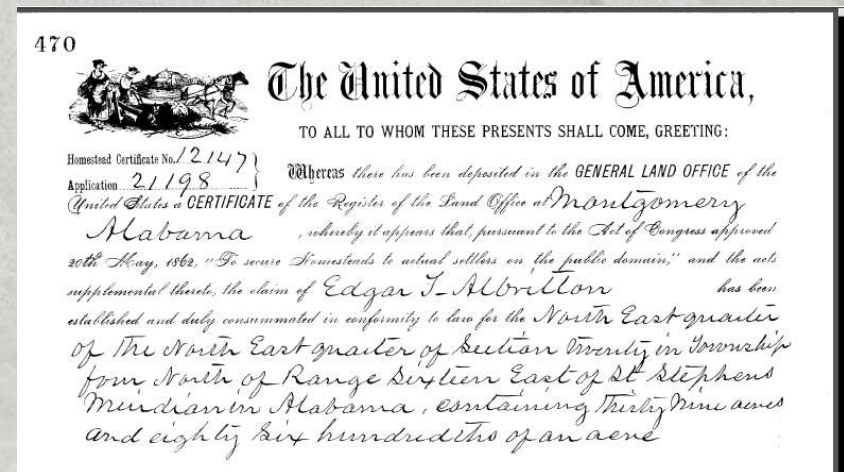 470
The United States of America,
TO ALL TO WHOM THESE PRESENTS SHALL COME, GREETING:
Homestead Certificate No. 12147
Application 21198
Whereas there has been deposited in the GENERAL LAND OFFICE of the
United States a CERTIFICATE of the Register of the Land Office at Montgomery
Alabama, whereby it appears that, pursuant to the Act of Congress approved
20th May, 1862, "To secure Homesteads to actual settlers on the public domain," and the acts
supplemental thereto, the claim of Edgar T. Albritton has been
established and duly consummated in conformity to law for the North East quarter
of the North East quarter of Section twenty in Township
four North of Range Sixteen East of St Stephens
Meridian in Alabama, containing Thirty Nine acres
and eighty six hundredths of an acre